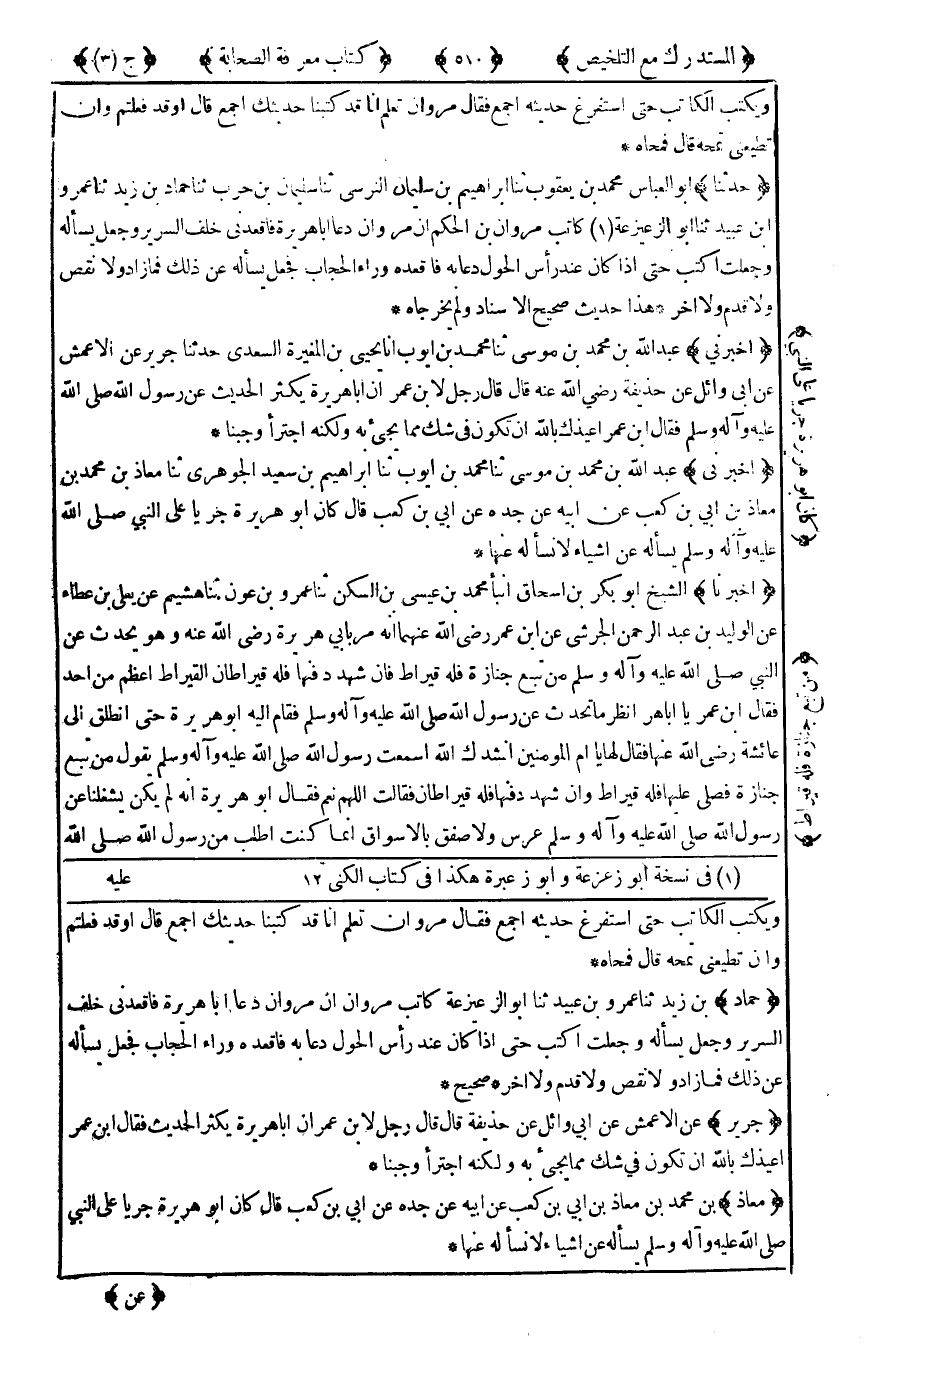 ﴿ المستدرك مع التلخيص ﴾ ﴿ ٥١٠ ﴾ ﴿ كتاب معرفة الصحابة ﴾ ﴿ ج (٣) ﴾
ويكتب الكاتب حتى استفرغ حديثه اجمع فقال مروان تعلم انا قد كتبنا حديثك اجمع قال اوقد فعلتم وان
تطيعنى تمحه قال فمحاه *
﴿ حدثنا ﴾ ابو العباس محمد بن يعقوب ثنا ابراهيم بن سليمان النرسى ثنا سليمان بن حرب ثنا حماد بن زيد ثنا عمرو
ابن عبيد ثنا ابو الزعيزعة (١) كاتب مروان بن الحكم ان مروان دعا اباهريرة فاقعدنى خلف السرير وجعل يسأله
وجعلت اكتب حتى اذا كان عند رأس الحول دعا به فاقعده وراء الحجاب فجعل يسأله عن ذلك فما زاد ولا نقص
ولا قدم ولا اخر * هذا حديث صحيح الاسناد ولم يخرجاه *
﴿ اخبرني ﴾ عبدالله بن محمد بن موسى ثنا محمد بن ايوب انا يحيى بن المغيرة السعدى حدثنا جرير عن الاعمش
عن ابى وائل عن حذيفة رضي الله عنه قال قال رجل لابن عمر ان اباهريرة يكثر الحديث عن رسول الله صلى الله
عليه وآله وسلم فقال ابن عمر اعيذك بالله ان تكون في شك مما يجيء به ولكنه اجترأ وجبنا *
﴿ اخبرنى ﴾ عبد الله بن محمد بن موسى ثنا محمد بن ايوب ثنا ابراهيم بن سعيد الجوهرى ثنا معاذ بن محمد بن
معاذ بن ابي بن كعب عن ابيه عن جده عن ابي بن كعب قال كان ابو هريرة جريا على النبي صلى الله
عليه وآله وسلم يسأله عن اشياء لا نسأله عنها *
﴿ اخبرنا ﴾ الشيخ ابو بكر بن اسحاق انبأ محمد بن عيسى بن السكن ثنا عمرو بن عون ثنا هشيم عن يعلى بن عطاء
عن الوليد بن عبد الرحمن الجرشى عن ابن عمر رضى الله عنهما انه مر بابي هريرة رضى الله عنه وهو يحدث عن
النبي صلى الله عليه وآله وسلم من تبع جنازة فله قيراط فان شهد دفنها فله قيراطان القيراط اعظم من احد
فقال ابن عمر يا اباهر انظر ما تحدث عن رسول الله صلى الله عليه وآله وسلم فقام اليه ابو هريرة حتى انطلق الى
عائشة رضى الله عنها فقال لها يا ام المومنين انشدك الله اسمعت رسول الله صلى الله عليه وآله وسلم يقول من تبع
جنازة فصلى عليها فله قيراط وان شهد دفنها فله قيراطان فقالت اللهم نعم فقال ابو هريرة انه لم يكن يشغلنا عن
رسول الله صلى الله عليه وآله وسلم غرس ولا صفق بالاسواق انما كنت اطلب من رسول الله صلى الله
(١) فى نسخة ابو زعزعة وابو زعيرة هكذا فى كتاب الكنى ١٢ عليه
ويكتب الكاتب حتى استفرغ حديثه اجمع فقال مروان تعلم انا قد كتبنا حديثك اجمع قال اوقد فعلتم
وان تطيعنى تمحه قال فمحاه *
﴿ حماد ﴾ بن زيد ثنا عمرو بن عبيد ثنا ابوالزعيزعة كاتب مروان ان مروان دعا اباهريرة فاقعدنى خلف
السرير وجعل يسأله وجعلت اكتب حتى اذا كان عند رأس الحول دعا به فاقعده وراء الحجاب فجعل يسأله
عن ذلك فما زاد ولا نقص ولا قدم ولا اخر * صحيح *
﴿ جرير ﴾ عن الاعمش عن ابي وائل عن حذيفة قال قال رجل لابن عمر ان اباهريرة يكثر الحديث فقال ابن عمر
اعيذك بالله ان تكون في شك مما يجيء به ولكنه اجترأ وجبنا *
﴿ معاذ ﴾ بن محمد بن معاذ بن ابي بن كعب عن ابيه عن جده عن ابي بن كعب قال كان ابو هريرة جريا على النبي
صلى الله عليه وآله وسلم يسأله عن اشياء لا نسأله عنها *
﴿ عن ﴾
﴿ كان ابو هريرة جريا على النبي ﴾